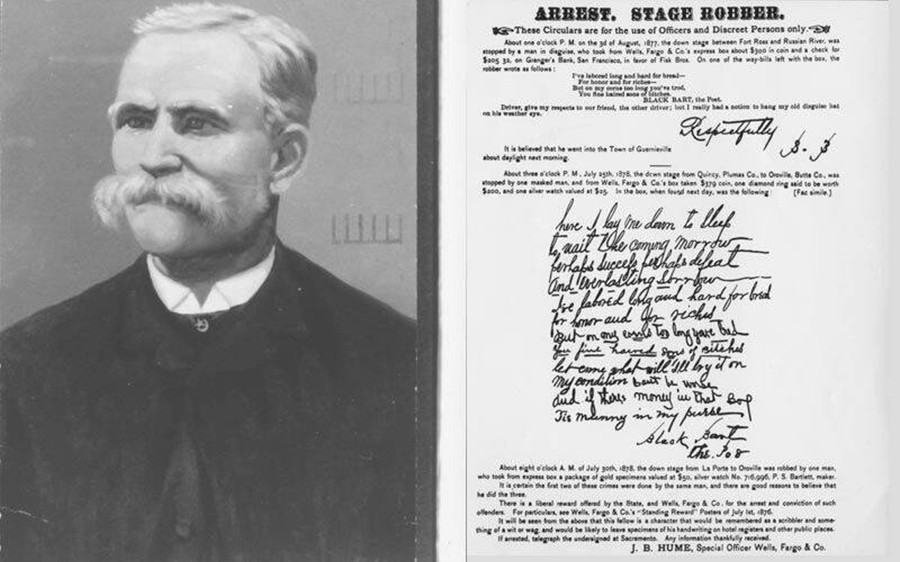 ARREST. STAGE ROBBER.
These Circulars are for the use of Officers and Discreet Persons only.
About one o'clock P. M. on the 3d of August, 1877, the down stage between Fort Ross and Russian River, was
stopped by a man in disguise, who took from Wells, Fargo & Co.'s express box about $300 in coin and a check for
$205 32, on Granger's Bank, San Francisco, in favor of Fisk Bros. On one of the way-bills left with the box, the
robber wrote as follows:
I've labored long and hard for bread—
For honor and for riches—
But on my corns too long you've trod,
You fine haired sons of bitches.
BLACK BART, the Poet.
Driver, give my respects to our friend, the other driver; but I really had a notion to hang my old disguise hat
on his weather eye.
Respectfully
B. B
It is believed that he went into the Town of Guernieville
about daylight next morning.
About three o'clock P. M., July 25th, 1878, the down stage from Quincy, Plumas Co., to Oroville, Butte Co., was
stopped by one masked man, and from Wells, Fargo & Co.'s box taken $379 coin, one diamond ring said to be worth
$200, and one silver watch valued at $25. In the box, when found next day, was the following: [Fac simile.]
here I lay me down to Sleep
to wait the coming morrow
perhaps success perhaps defeat
And everlasting Sorrow
I've labored long and hard for bred
for honor and for riches
But on my corns too long yove tred
You fine haired sons of Bitches
let come what will I'll try it on
My condition cant be worse
and if theres money in that Box
Tis munny in my purse
Black Bart
the Po8
About eight o'clock A. M. of July 30th, 1878, the down stage from La Porte to Oroville was robbed by one man,
who took from express box a package of gold specimens valued at $50, silver watch No. 716,996, P. S. Bartlett, maker.
It is certain the first two of these crimes were done by the same man, and there are good reasons to believe that
he did the three.
There is a liberal reward offered by the State, and Wells, Fargo & Co. for the arrest and conviction of such
offenders. For particulars, see Wells, Fargo & Co.'s "Standing Reward" Posters of July 1st, 1876.
It will be seen from the above that this fellow is a character that would be remembered as a scribbler and some-
thing of a wit or wag, and would be likely to leave specimens of his handwriting on hotel registers and other public places.
If arrested, telegraph the undersigned at Sacramento. Any information thankfully received.
J. B. HUME, Special Officer Wells, Fargo & Co.